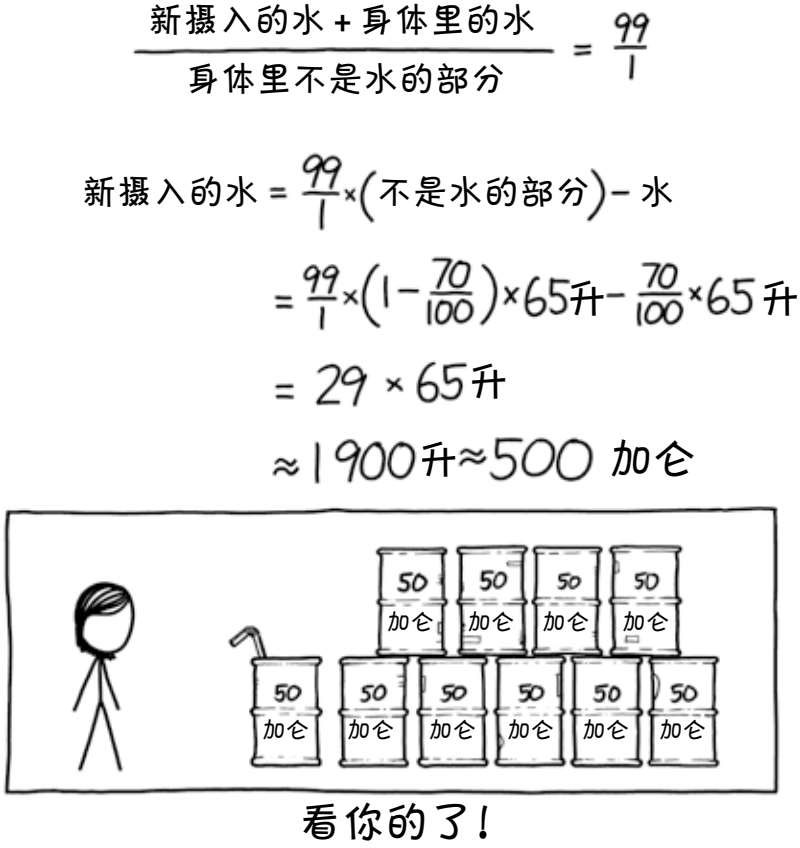 新摄入的水 + 身体里的水
身体里不是水的部分
= 99/1
新摄入的水 = 99/1 × (不是水的部分) − 水
= 99/1 × (1 − 70/100) × 65升 − 70/100 × 65 升
= 29 × 65升
≈ 1900升 ≈ 500 加仑
50 50 50 50
加仑 加仑 加仑 加仑
50 50 50 50 50 50
加仑 加仑 加仑 加仑 加仑 加仑
看你的了!